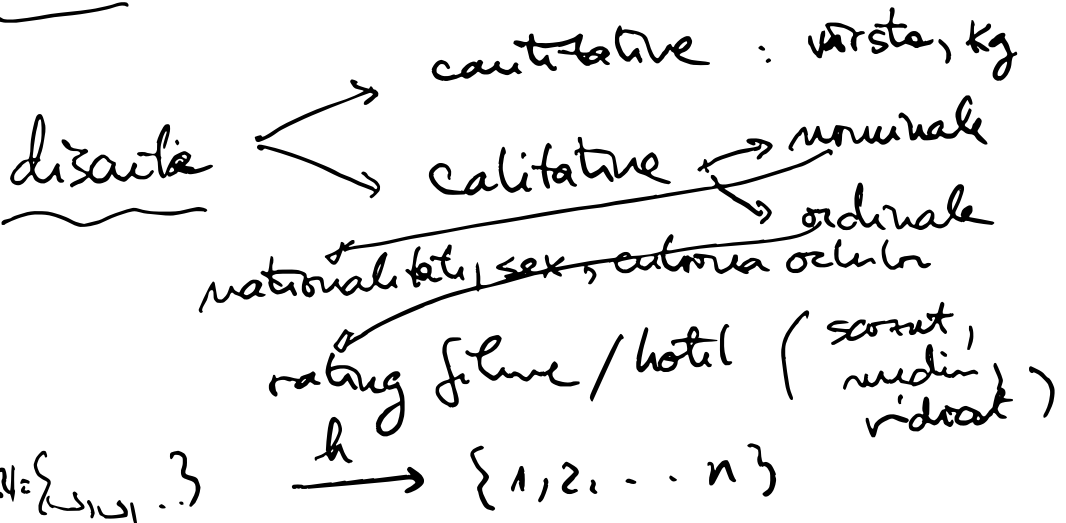 cantitative : vârsta, kg
discuta
calitative nominale
ordinale
nationalitati, sex, culoarea ochilor
rating filme / hotel ( scazut,
mediu,
ridicat )
h
= { , , .. } → { 1, 2, . . . n }